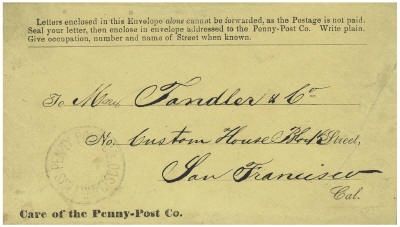 Letters enclosed in this Envelope alone cannot be forwarded, as the Postage is not paid.
Seal your letter, then enclose in envelope addressed to the Penny-Post Co. Write plain.
Give occupation, number and name of Street when known.
To Mess Tandler & Co
No. Custom House Block Street,
San Francisco
Cal.
PENNY POST CO.
Care of the Penny-Post Co.